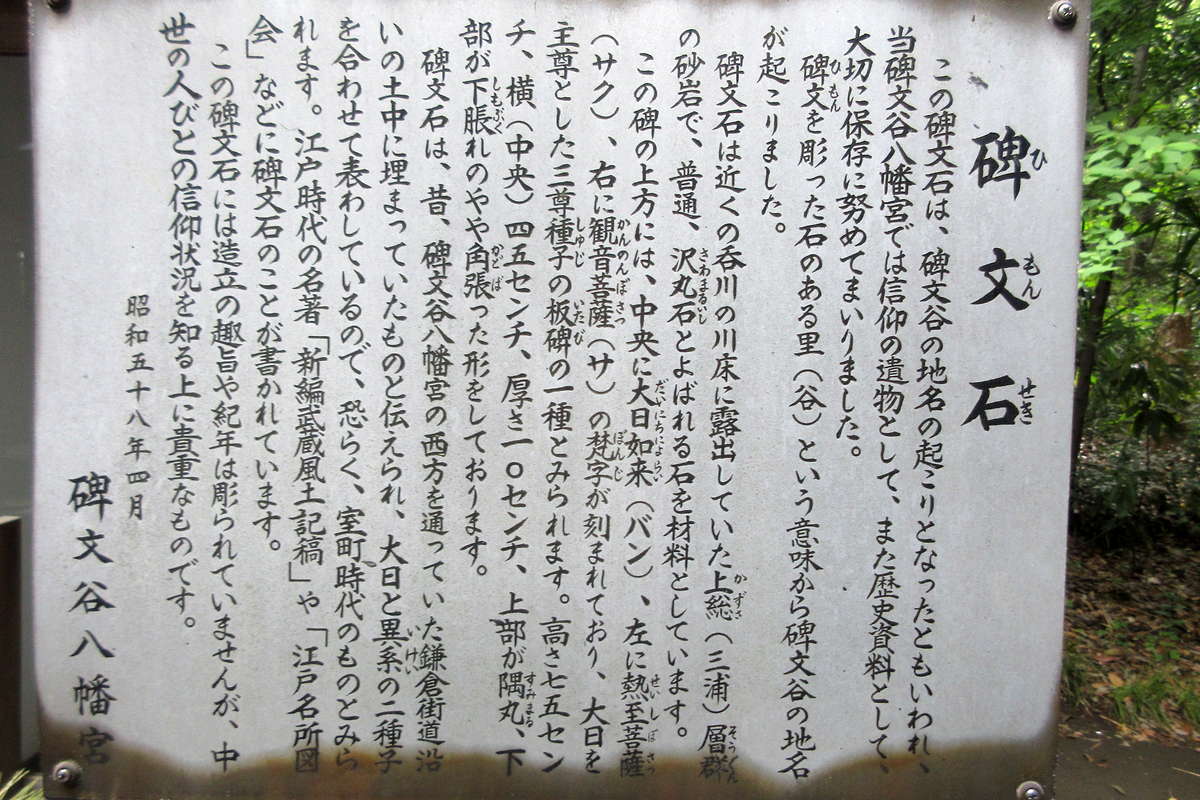 碑文石
この碑文石は、碑文谷の地名の起こりとなったともいわれ、
当碑文谷八幡宮では信仰の遺物として、また歴史資料として、
大切に保存に努めてまいりました。
碑文を彫った石のある里（谷）という意味から碑文谷の地名
が起こりました。
碑文石は近くの呑川の川床に露出していた上総（三浦）層群
の砂岩で、普通、沢丸石とよばれる石を材料としています。
この碑の上方には、中央に大日如来（バン）、左に熱至菩薩
（サク）、右に観音菩薩（サ）の梵字が刻まれており、大日を
主尊とした三尊種子の板碑の一種とみられます。高さ七五セン
チ、横（中央）四五センチ、厚さ一〇センチ、上部が隅丸、下
部が下脹れのやや角張った形をしております。
碑文石は、昔、碑文谷八幡宮の西方を通っていた鎌倉街道沿
いの土中に埋まっていたものと伝えられ、大日と異系の二種子
を合わせて表わしているので、恐らく、室町時代のものとみら
れます。江戸時代の名著「新編武蔵風土記稿」や「江戸名所図
会」などに碑文石のことが書かれています。
この碑文石には造立の趣旨や紀年は彫られていませんが、中
世の人びとの信仰状況を知る上に貴重なものです。
昭和五十八年四月
碑文谷八幡宮